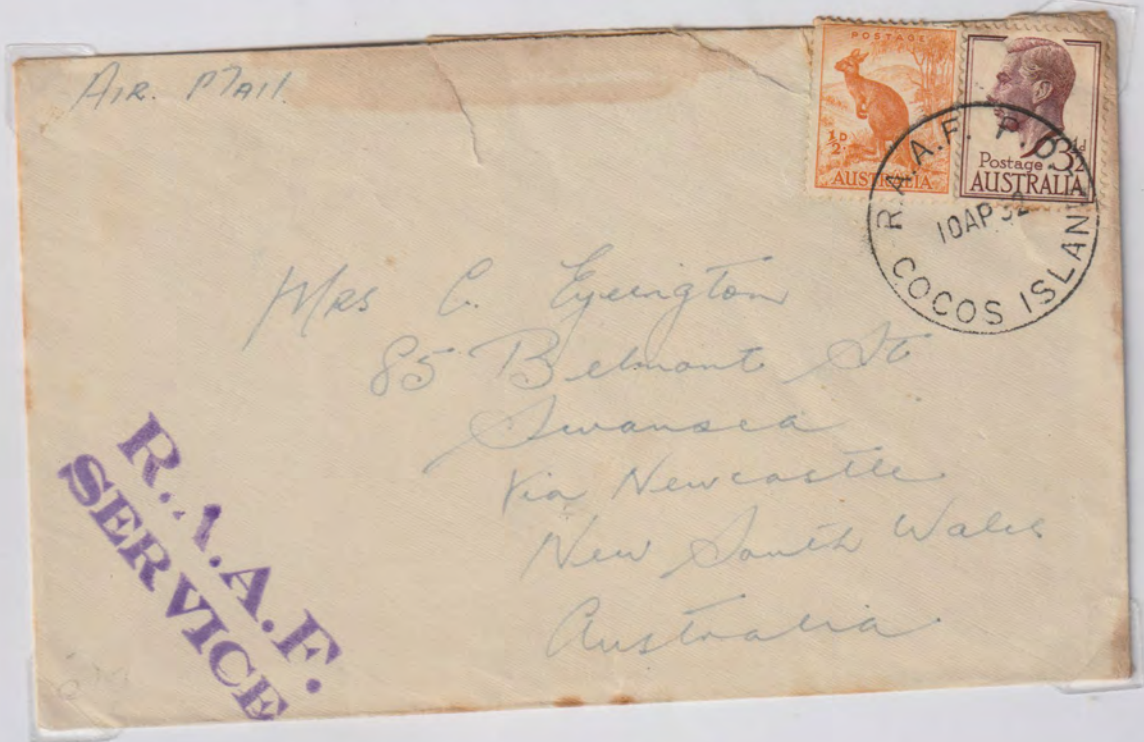 AIR. MAIL.
POSTAGE
½D
AUSTRALIA
3½d
Postage
AUSTRALIA
R.A.A.F. P.O.
10AP52
COCOS ISLAND
Mrs C.
85 Belmont St
Swansea
Via Newcastle
New South Wales
Australia.
R.A.A.F.
SERVICE